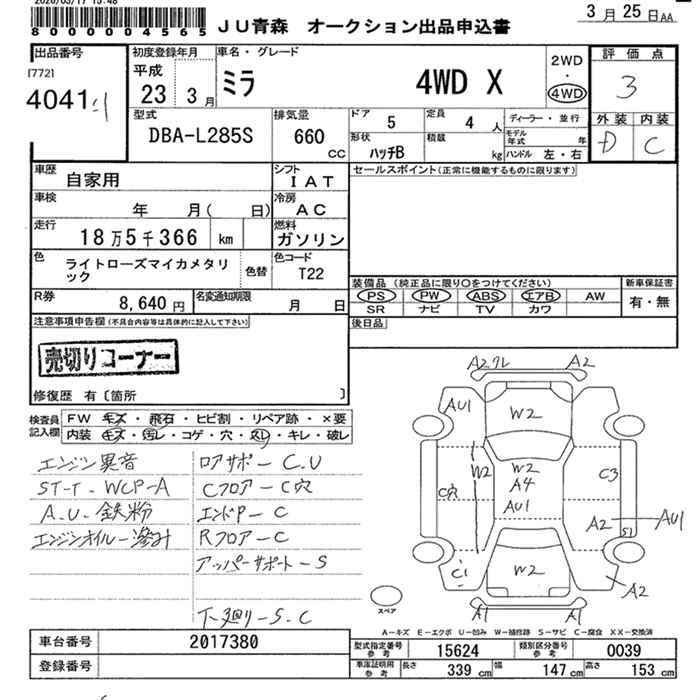 2026/03/17 15:48
800004565 JU青森 オークション出品申込書
3月25日AA
出品番号 初度登録年月 車名・グレード 評価点
[772]
4041 平成 23 3月 ミラ 4WD X 2WD・4WD 3
型式 排気量 ドア 定員 ディーラー・並行 外装 内装
DBA-L285S 660cc 5 4人 モデル年式 年 D C
形状 ハッチB 積載 kg ハンドル 左・右
車歴 自家用 シフト IAT セールスポイント(正常に機能するものに限ります)
車検 年 月( 日) 冷房 AC
走行 18万5千366 km 燃料 ガソリン
色 ライトローズマイカメタリック 色替 色コード T22
装備品(純正品に限り○をつけてください) 新車保証書
PS PW ABS エアB AW 有・無
SR ナビ TV カワ
R券 8,640円 名変通知期限 月 日
注意事項申告欄(不具合内容等は具体的に記入して下さい) 後日品
売切りコーナー
修復歴 有〔箇所 〕
検査員記入欄 FW キズ・飛石・ヒビ割・リペア跡・×要
内装 キズ・汚レ・コゲ・穴・スレ・キレ・破レ
エンジン異音 ロアサポーC.U
ST-T.WCP-A Cフロアー C穴
A.U-鉄粉 エンドP-C
エンジンオイルー滲み Rフロアー C
アッパーサポートーS
下廻りーS.C
A2ワレ A2
AU1 W2
W2 W2 C3
A4
C穴 AU1 A2 S1 AU1
C1 W2 A2
A1 A1
スペア
A-キズ E-エクボ U-凹み W-補修跡 S-サビ C-腐食 XX-交換済
車台番号 2017380 型式指定番号 参考 15624 類別区分番号 参考 0039
登録番号 車庫証明用 参考 長さ 339cm 幅 147cm 高さ 153cm